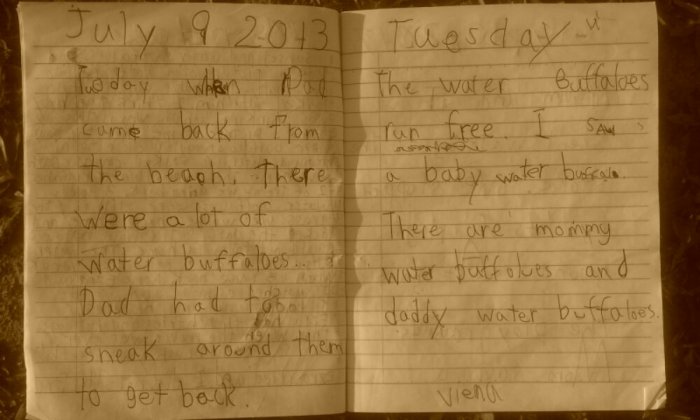 July 9 2013
Today when Dad
came back from
the beach. There
were a lot of
water buffaloes.
Dad had to
sneak around them
to get back.
Tuesday
The water buffaloes
run free. I saw
a baby water buffalo.
There are mommy
water buffaloes and
daddy water buffaloes.
Viena